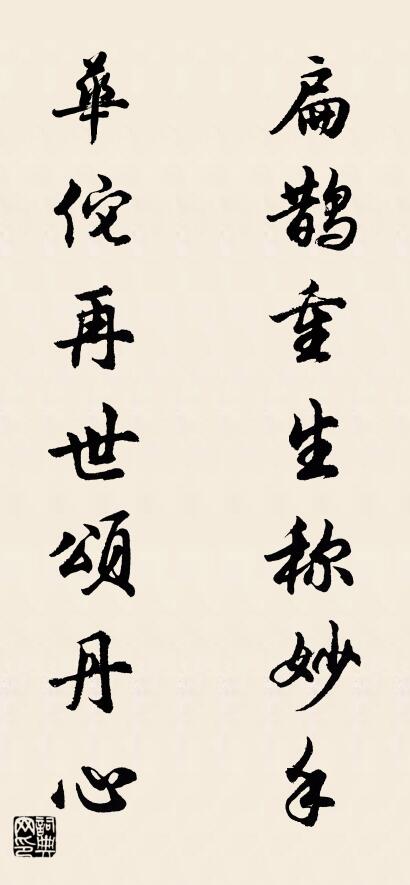 扁鹊重生称妙手
華佗再世頌丹心